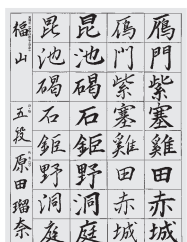 鴈門紫塞雞田赤城
鴈門紫塞雞田赤城
昆池碣石鉅野洞庭
昆池碣石鉅野洞庭
福山 五段 原田瑠奈